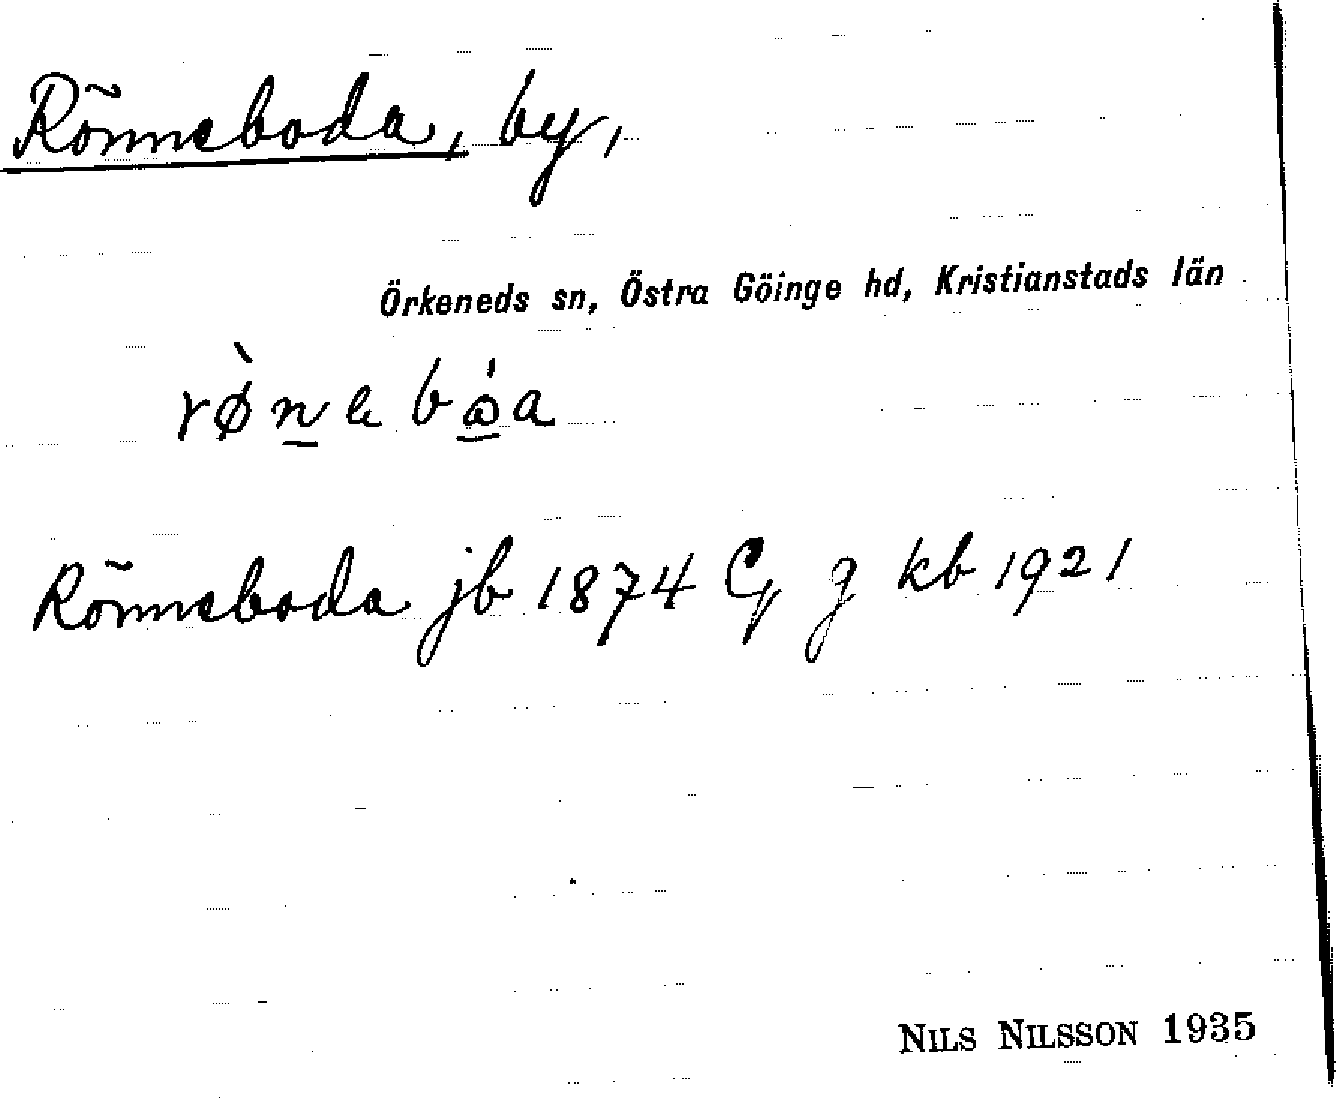 Rönneboda, by,
Örkeneds sn, Östra Göinge hd, Kristianstads län
Rönneboda jb 1874 kb 1921
NILS NILSSON 1935